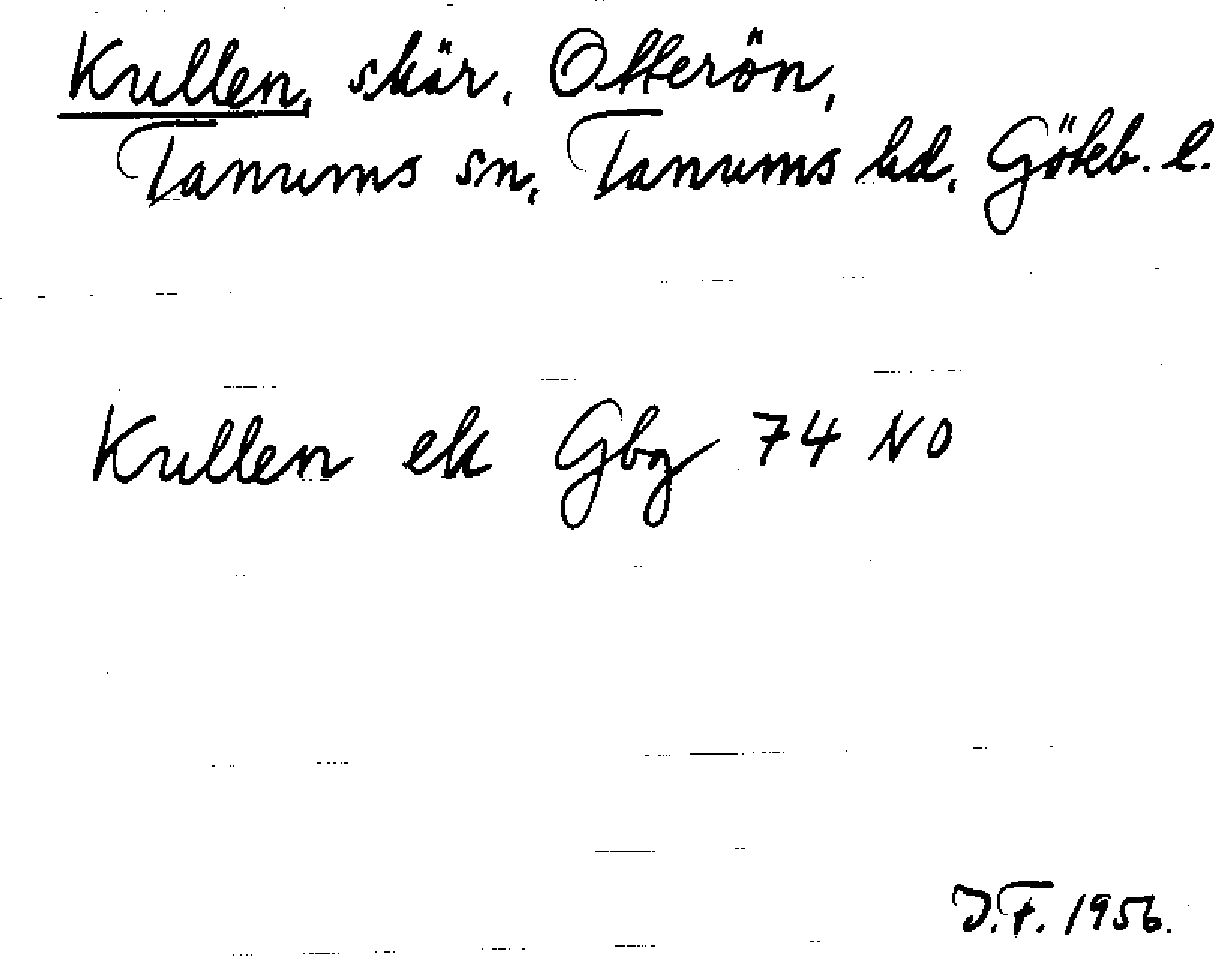 Kullen, skär, Otterön,
Tanums sn, Tanums hd, Göteb. l.
Kullen ek Gbg 74 NO
J.F. 1956.